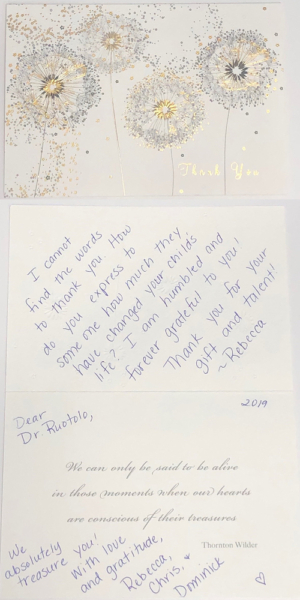 Thank You
I cannot
find the words
to thank you. How
do you express to
someone how much they
have changed your child's
life? I am humbled and
furever grateful to you!
Thank you for your
gift and talent!
~ Rebecca
2019
Dear
Dr Ruotolo,
We can only be said to be alive
in those moments when our hearts
are conscious of their treasures
Thornton Wilder
We
absolutely
treasure you!
With love
and gratitude,
Rebecca,
Chris, &
Dominick